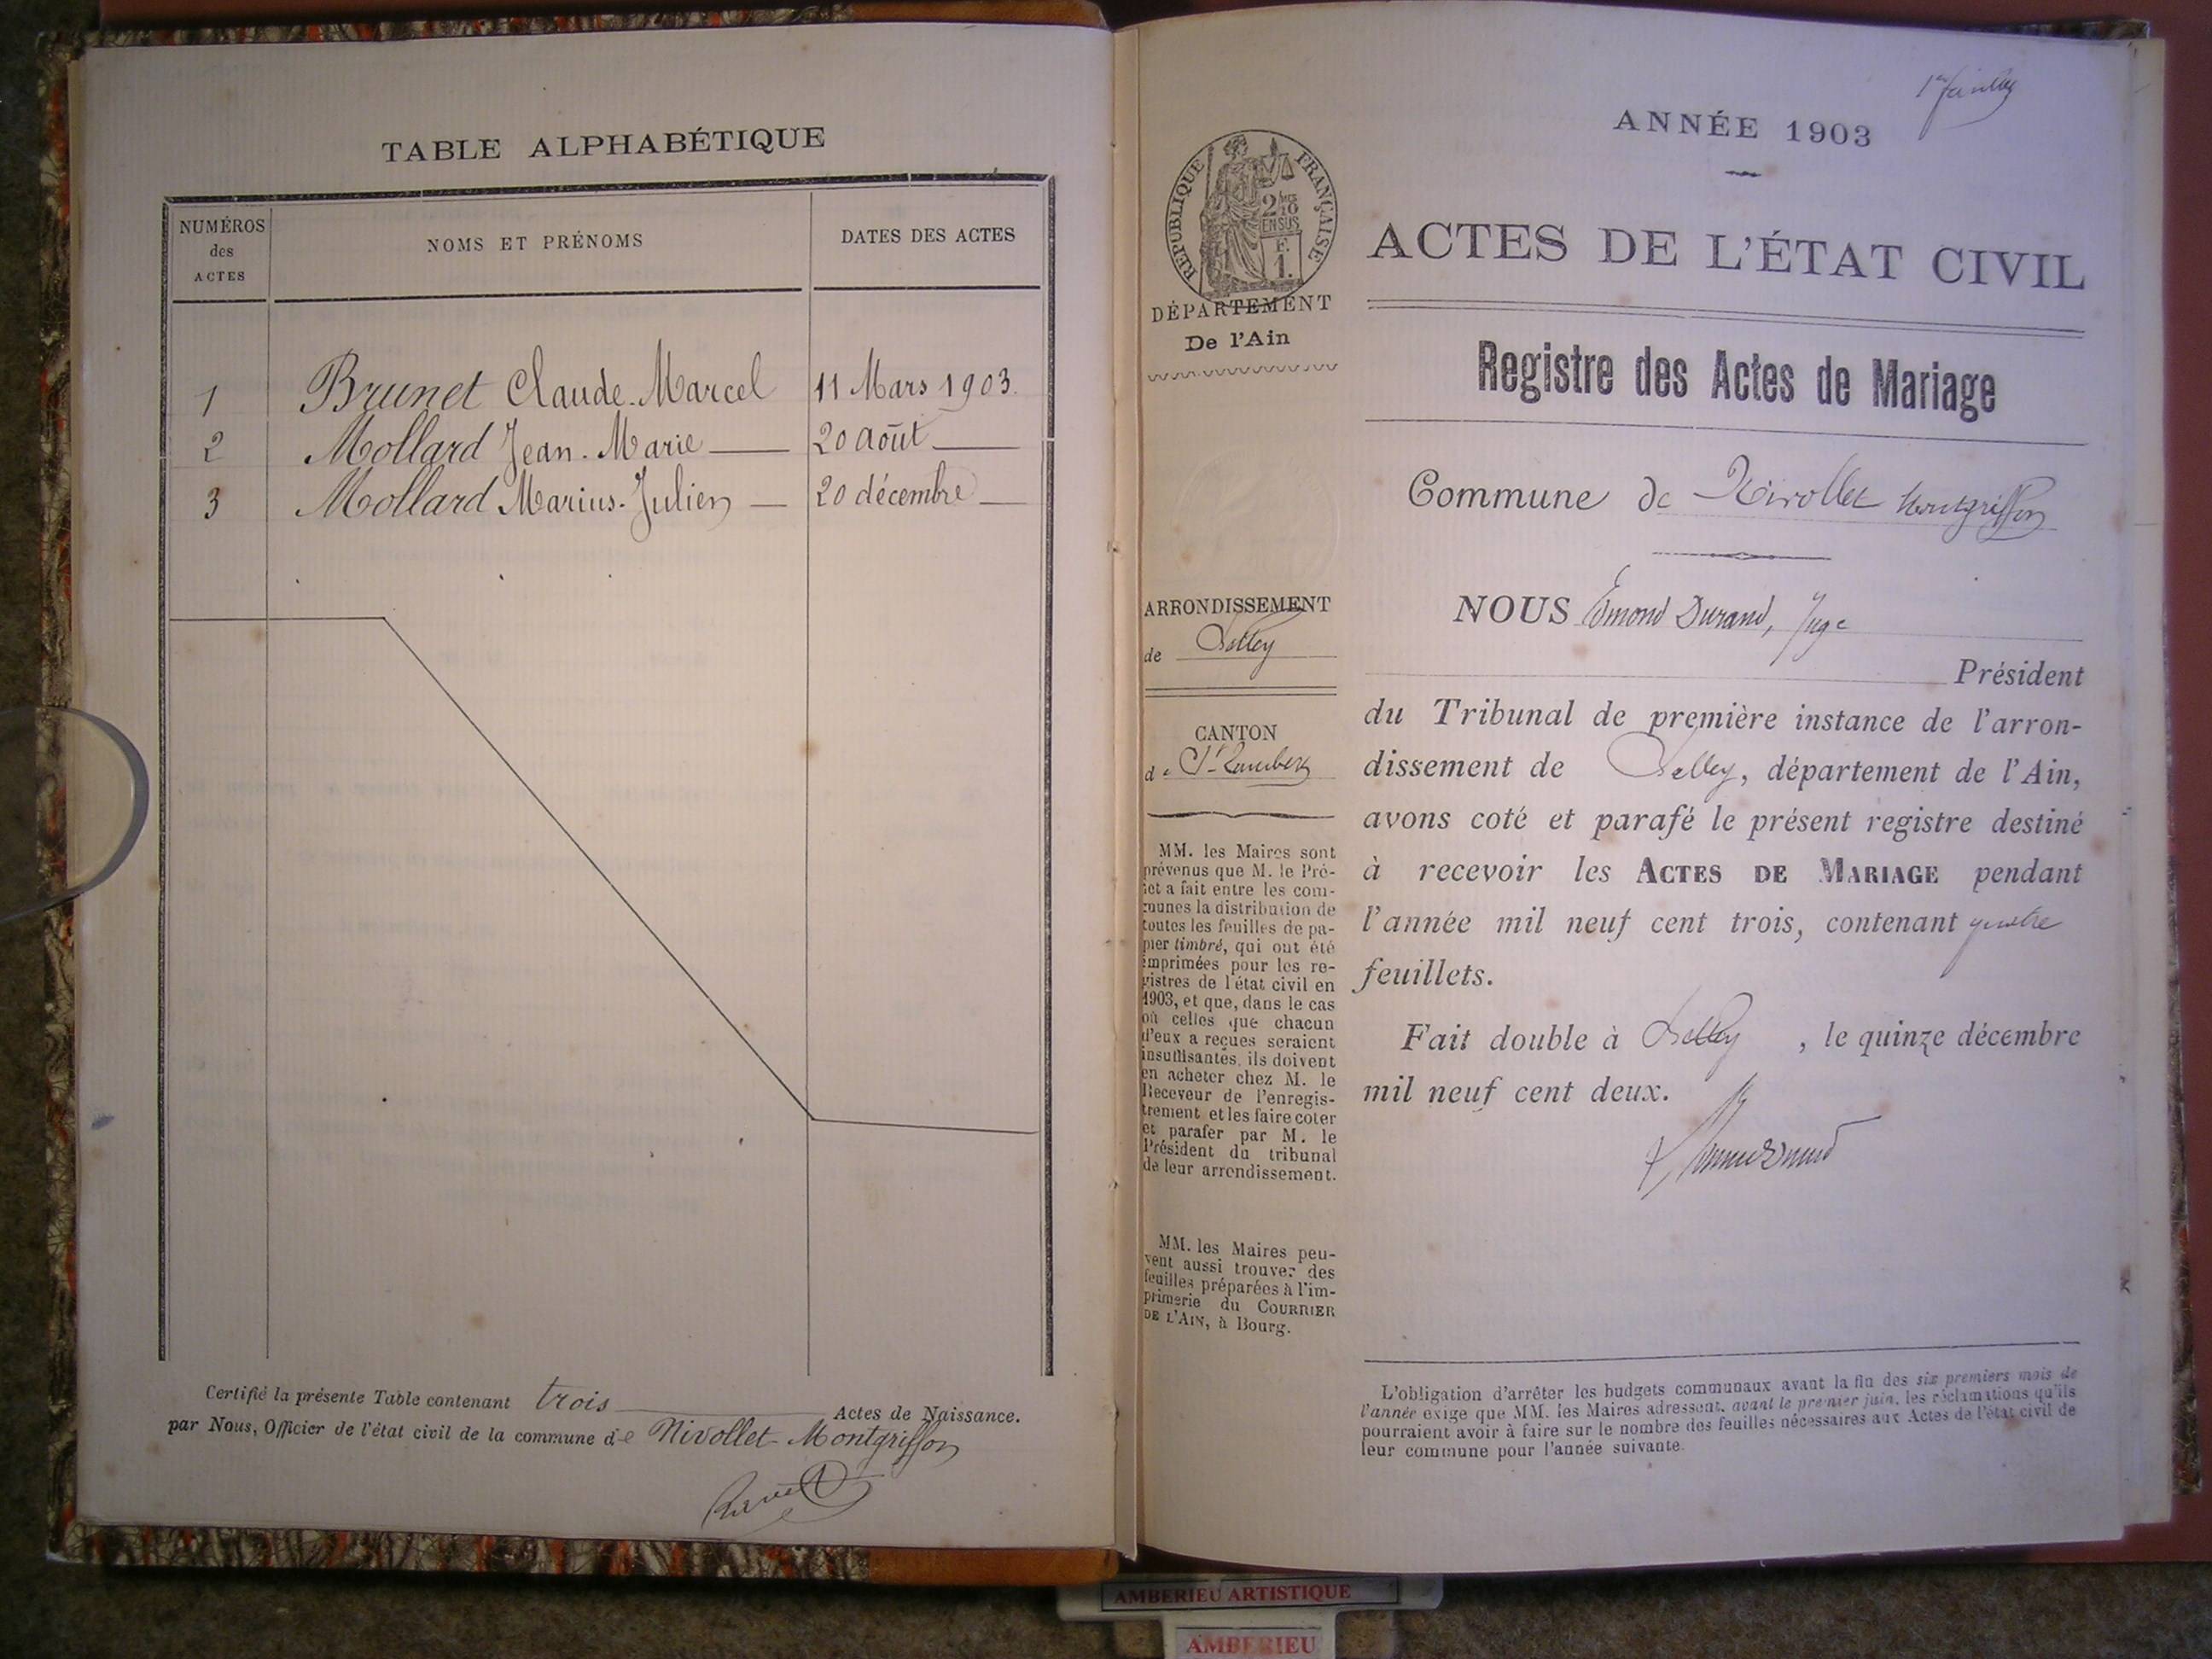 TABLE ALPHABÉTIQUE
NUMÉROS
des
ACTES
NOMS ET PRÉNOMS
DATES DES ACTES
1 Brunet Claude-Marcel 11 Mars 1903.
2 Mollard Jean-Marie 20 août
3 Mollard Marius-Julien 20 décembre
Certifié la présente Table contenant trois Actes de Naissance.
par Nous, Officier de l'état civil de la commune de Nivollet-Montgriffon
1er feuillet
ANNÉE 1903
RÉPUBLIQUE FRANÇAISE
2/10
EN SUS
F.
1.
DÉPARTEMENT
De l'Ain
ARRONDISSEMENT
de Belley
CANTON
de St-Rambert
MM. les Maires sont
prévenus que M. le Pré-
fet a fait entre les com-
munes la distribution de
toutes les feuilles de pa-
pier timbré, qui ont été
imprimées pour les re-
gistres de l'état civil en
1903, et que, dans le cas
où celles que chacun
d'eux a reçues seraient
insuffisantes, ils doivent
en acheter chez M. le
Receveur de l'enregis-
trement et les faire coter
et parafer par M. le
Président du tribunal
de leur arrondissement.
MM. les Maires peu-
vent aussi trouver des
feuilles préparées à l'im-
primerie du COURRIER
DE L'AIN, à Bourg.
ACTES DE L'ÉTAT CIVIL
Registre des Actes de Mariage
Commune de Nivollet Montgriffon
NOUS Edmond Durand, Juge
Président
du Tribunal de première instance de l'arron-
dissement de Belley, département de l'Ain,
avons coté et parafé le présent registre destiné
à recevoir les ACTES DE MARIAGE pendant
l'année mil neuf cent trois, contenant quatre
feuillets.
Fait double à Belley, le quinze décembre
mil neuf cent deux.
L'obligation d'arrêter les budgets communaux avant la fin des six premiers mois de
l'année exige que MM. les Maires adressent, avant le premier juin, les réclamations qu'ils
pourraient avoir à faire sur le nombre des feuilles nécessaires aux Actes de l'état civil de
leur commune pour l'année suivante.
AMBERIEU ARTISTIQUE
AMBERIEU